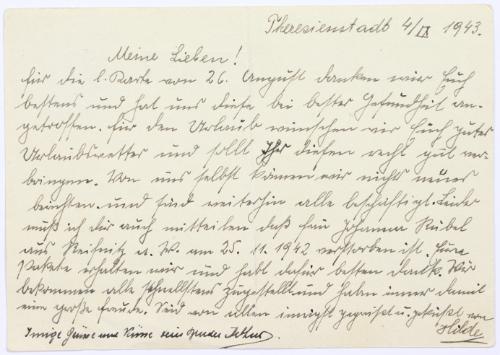 Theresienstadt 4/IX 1943.
Meine Lieben!
Für die l. Karte von 26. August danken wir Euch
bestens und hat uns diese bei bester Gesundheit an-
getroffen. Für den Urlaub wünschen wir Euch gutes
Urlaubswetter und sollt Ihr diesen recht gut ver-
bringen. Von uns selbst können wir nichts neues
berichten und sind weiterhin alle beschäftigt. Leider
muß ich dir auch mitteilen daß Frau Johanna Kubel
aus a. W. am 25. 11. 1942 verstorben ist. Eure
Pakete erhalten wir und habt dafür besten Dank. Wir
bekommen alle schnellstens zugestellt und haben immer damit
eine große Freude. Seid von allen innigst gegrüßt u. geküßt von
Hilde
Innige Grüsse und Küsse sein